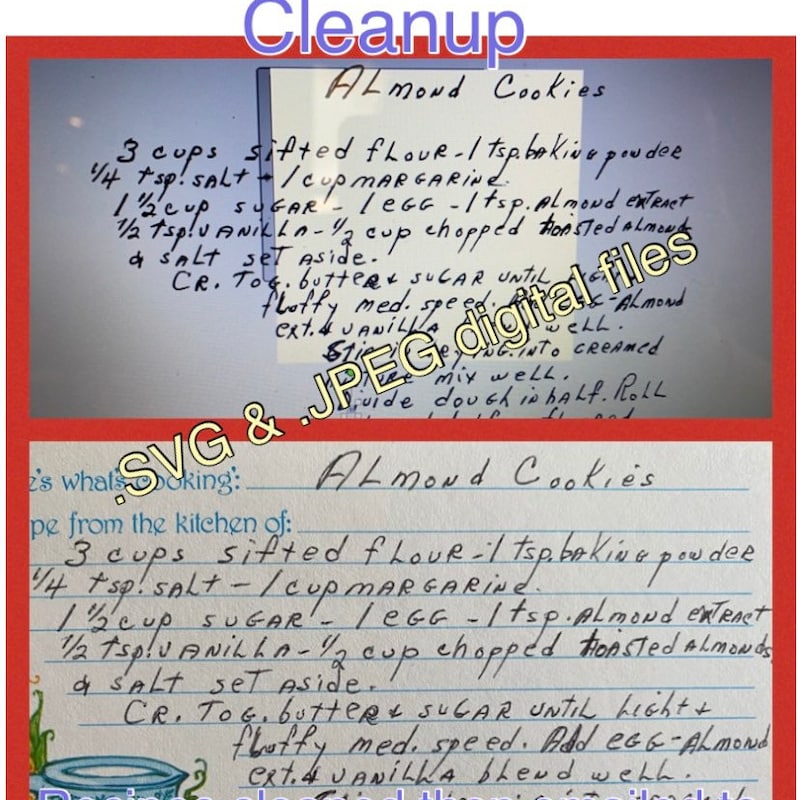 Cleanup
ALmond Cookies
3 cups sifted fLOUR - 1 tsp. baking powder
1/4 tsp. SALT - 1 cup MARGARINE
1 1/2 cup SUGAR - 1 EGG - 1 tsp. ALmond extRact
1/2 tsp. VANILLA - 1/2 cup chopped toasted ALmonds
& SALT seT Aside.
CR. TOG. butteR & SUGAR UNTIL
fluffy med. speed. EGG - ALmond
ext. & VANILLA weLL.
INTO CREAMed
mix weLL.
Divide dough in haLf. RoLL
.SVG & .JPEG digital files
e's what's cooking: ALmond Cookies
pe from the kitchen of:
3 cups sifted fLOUR - 1 tsp. baking powder
1/4 tsp. SALT - 1 cup MARGARINE.
1 1/2 cup SUGAR - 1 EGG - 1 tsp. ALmond extRact
1/2 tsp. VANILLA - 1/2 cup chopped toasted ALmonds
& SALT seT Aside.
CR. TOG. butteR & SUGAR UNTIL Light &
fluffy med. speed. Add EGG - ALmond
ext. & VANILLA bLend weLL.